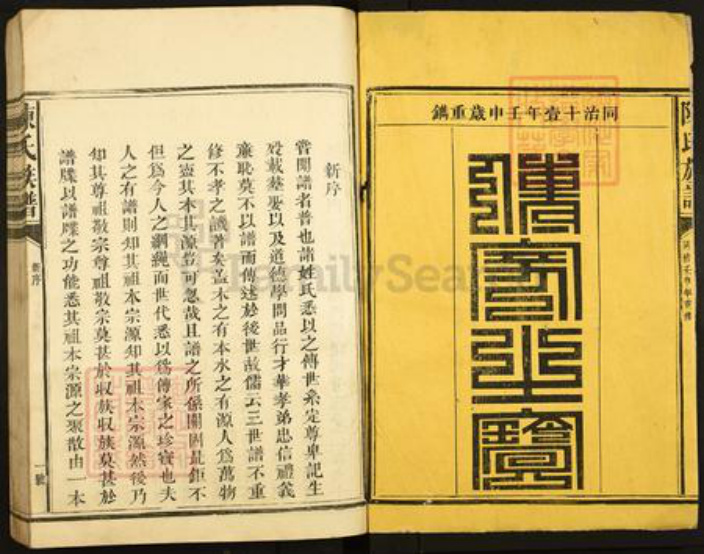 同治十壹年壬申歲重鐫
傳家至寶
陳氏族譜
新序
嘗聞譜者普也諸姓氏悉以之傳世系定尊卑記生
殁載塟娶以及道德學問品行才華孝弟忠信禮義
廉恥莫不以譜而傳述於後世故儒云三世譜不重
修不孝之譏著矣盖木之有本水之有源人為萬物
之靈其本其源豈可忽哉且譜之所係關固鉅不
但為今人之綱䋲而世代悉以為傳家之珍寶也夫
人之有譜則知其祖本宗源知其祖本宗源然後乃
知其尊祖敬宗尊祖敬宗莫甚於收族收族莫甚於
譜牒以譜牒之功能悉其祖本宗源之聚散由一本
陳氏族譜
新序
一號
FamilySearch